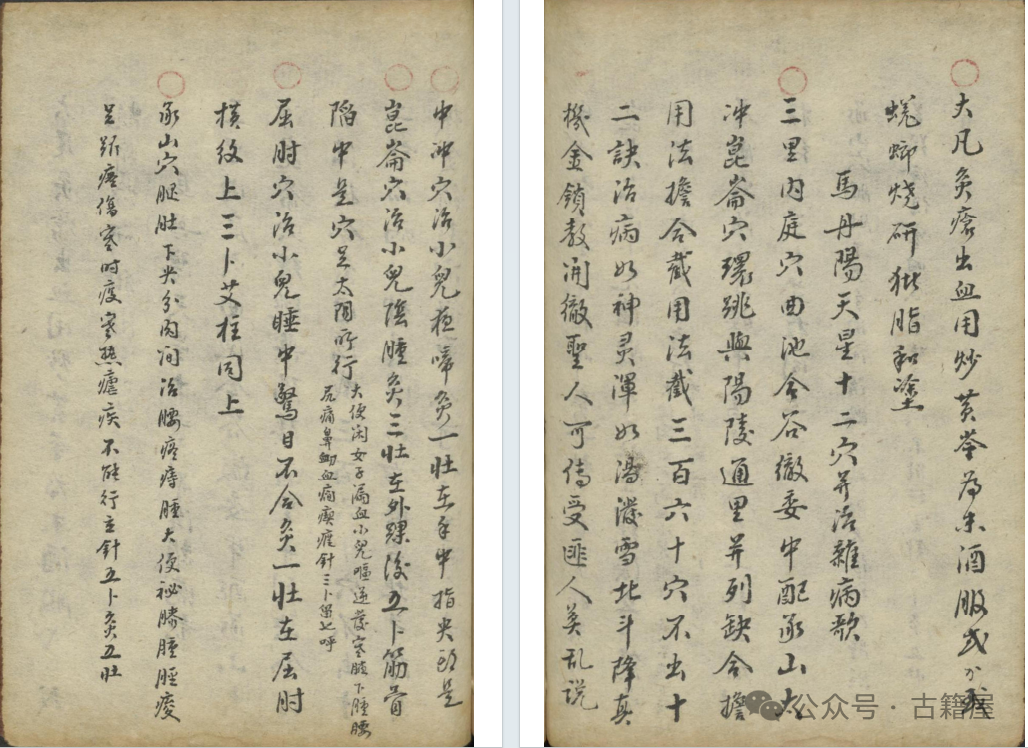 大凡灸瘡出血用炒黄芩為末酒服或
蜣螂烧研 秕脂和塗
馬丹陽天星十二穴并治雜病歌
三里内庭穴曲池合谷徹委中配承山太
冲崑崙穴環跳與陽陵通里并列缺合擔
用法擔合截用法截三百六十穴不出十
二訣治病如神灵渾如湯潑雪北斗降真
機金鎖教開徹聖人可傳受匪人莫乱说
中冲穴治小兒夜啼灸一壮在手中指尖是
崑崙穴治小兒陰腫灸三壮在外踝後五卜筋骨
陷中是穴足太阳所行
大便闭女子漏血小兒嘔逆發寒膝下腫腰
尻痛鼻衂血痛瘈疭針三卜留七呼
屈肘穴治小兒睡中驚目不合灸一壮在屈肘
横纹上三卜艾柱同上
承山穴腿肚下尖分肉间治腰疼痔腫大便秘膝腫脛痠
足跟疼傷寒时疫寒热瘧疾不能行立針五卜灸五壮
公众号·古籍屋